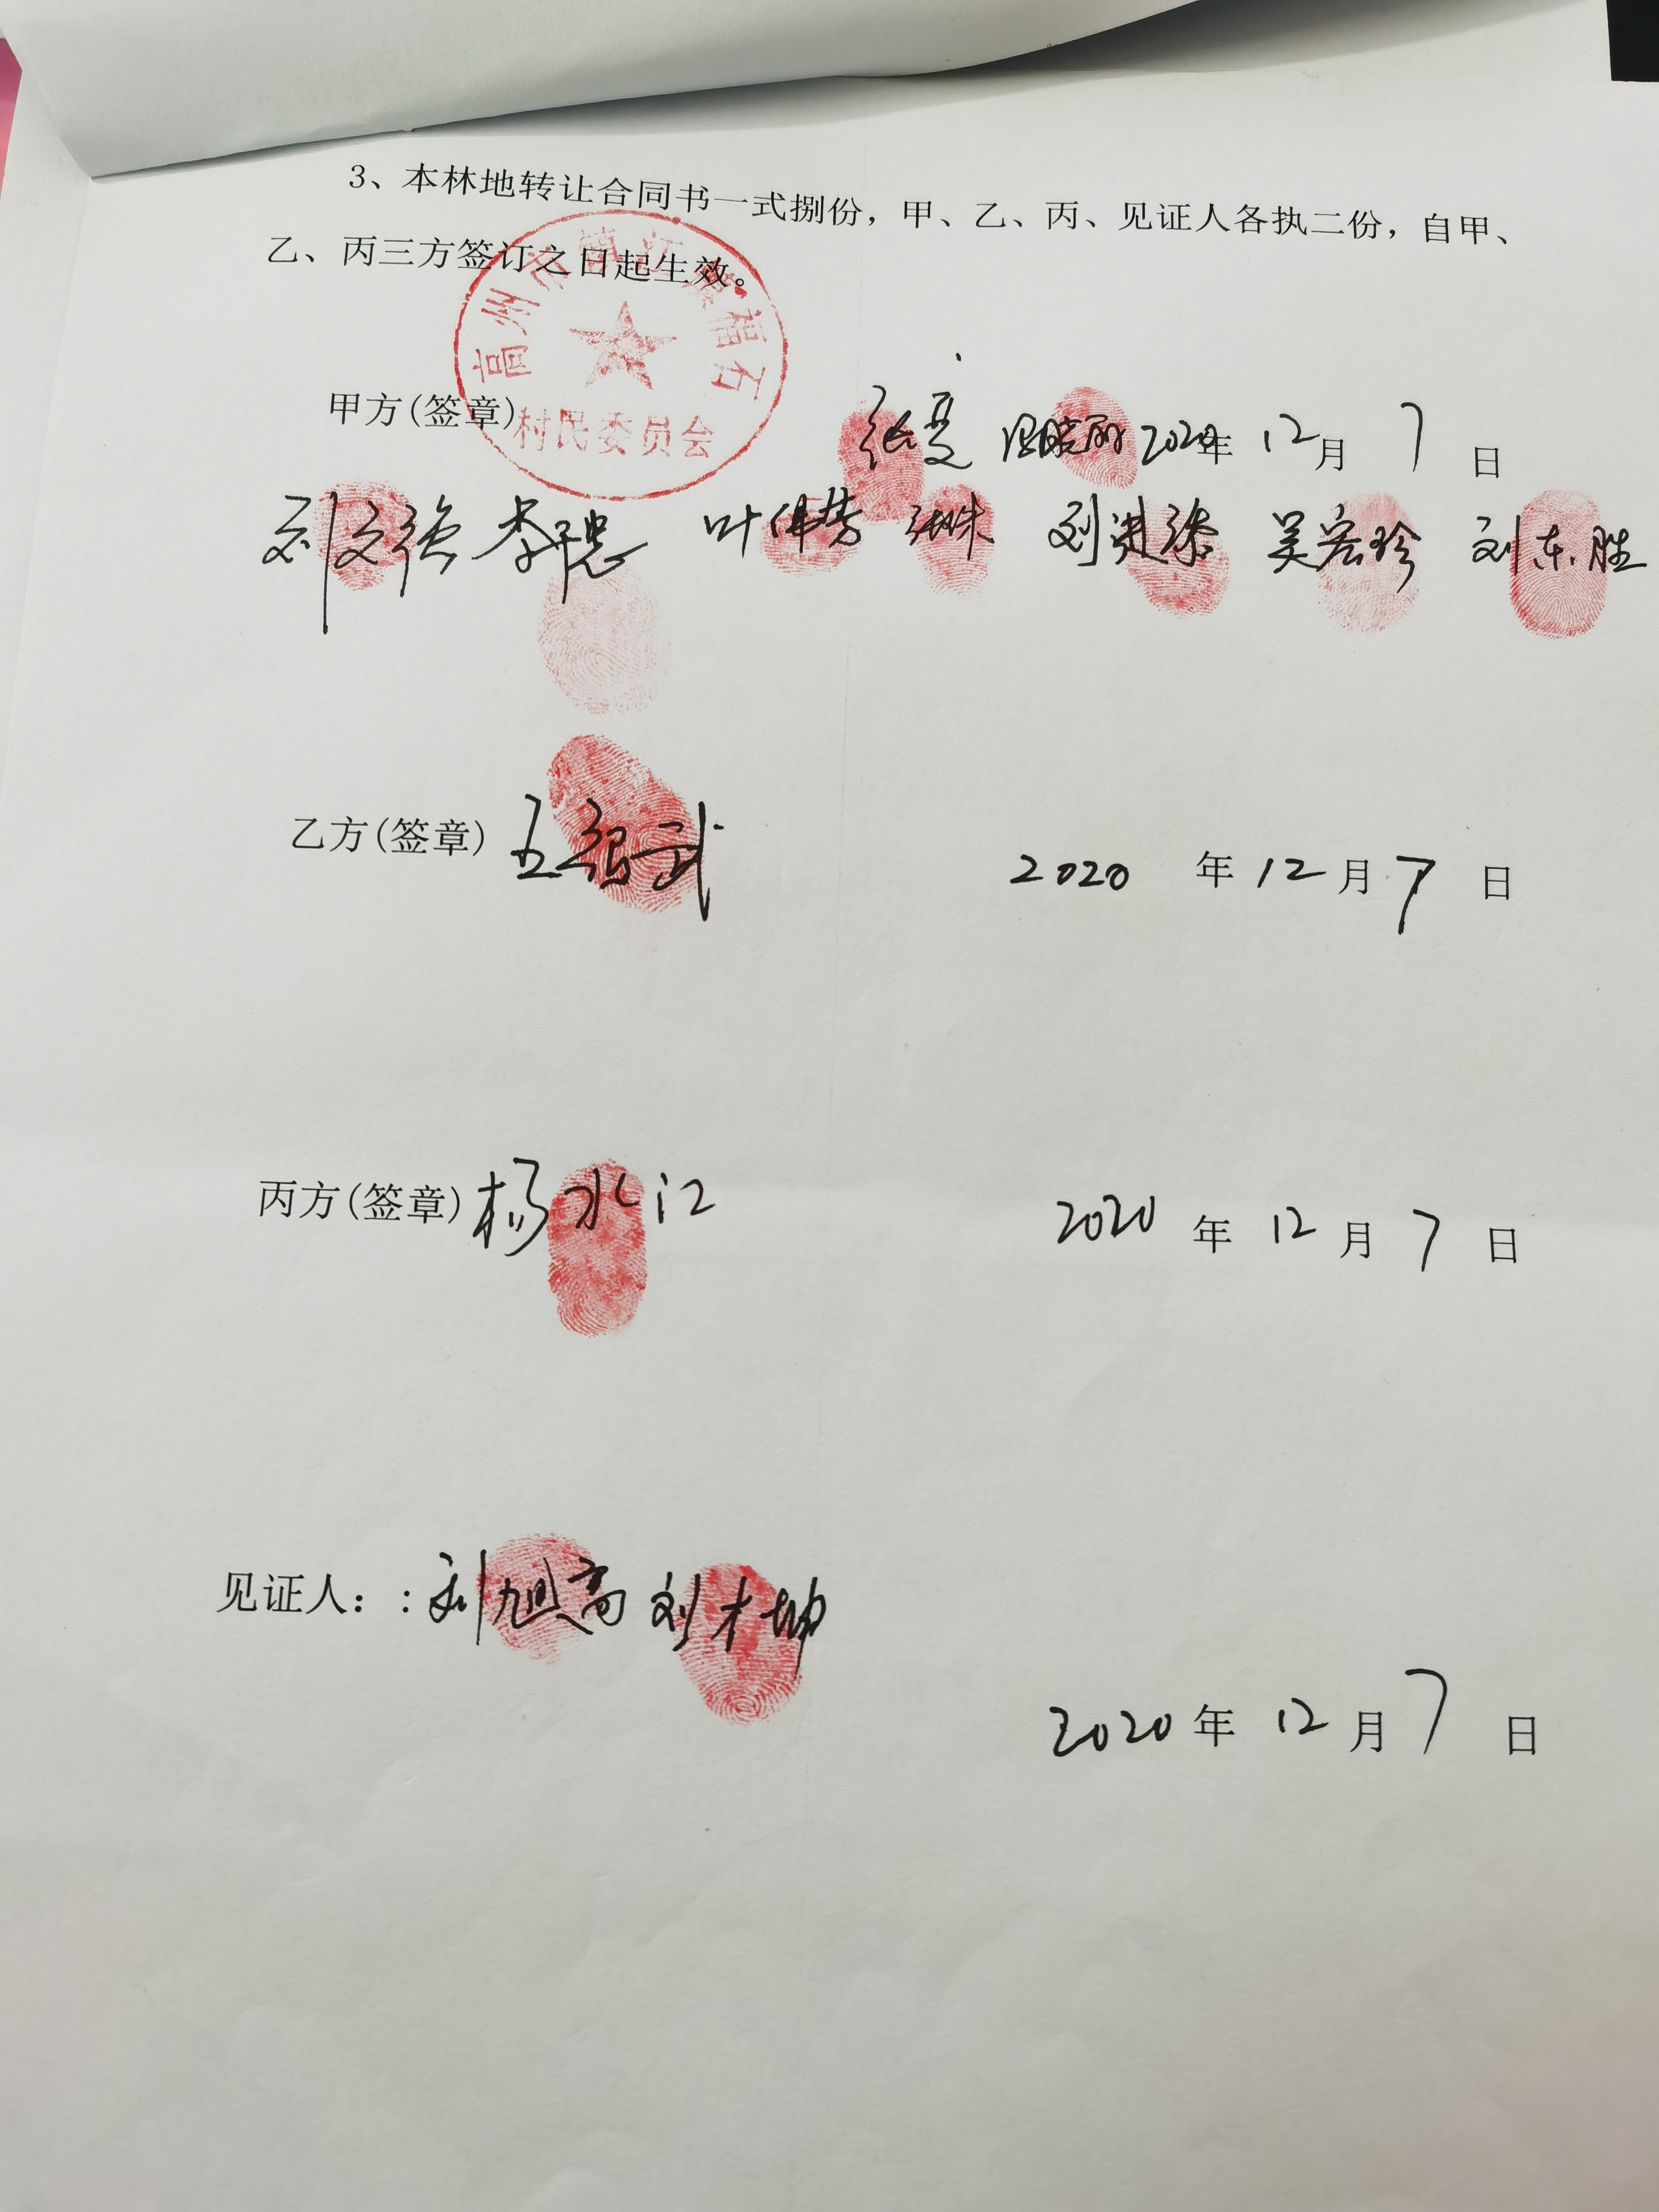 3、本林地转让合同书一式捌份，甲、乙、丙、见证人各执二份，自甲、
乙、丙三方签订之日起生效。
高州市镇江镇福石
村民委员会
甲方(签章) 2020年 12月 7 日
刘文强 李 忠 叶伟芳 刘进 吴宏珍 刘东胜
乙方(签章) 王强武 2020 年 12 月 7 日
丙方(签章) 杨水江 2020 年 12 月 7 日
见证人：: 刘旭高 刘木坤
2020 年 12 月 7 日